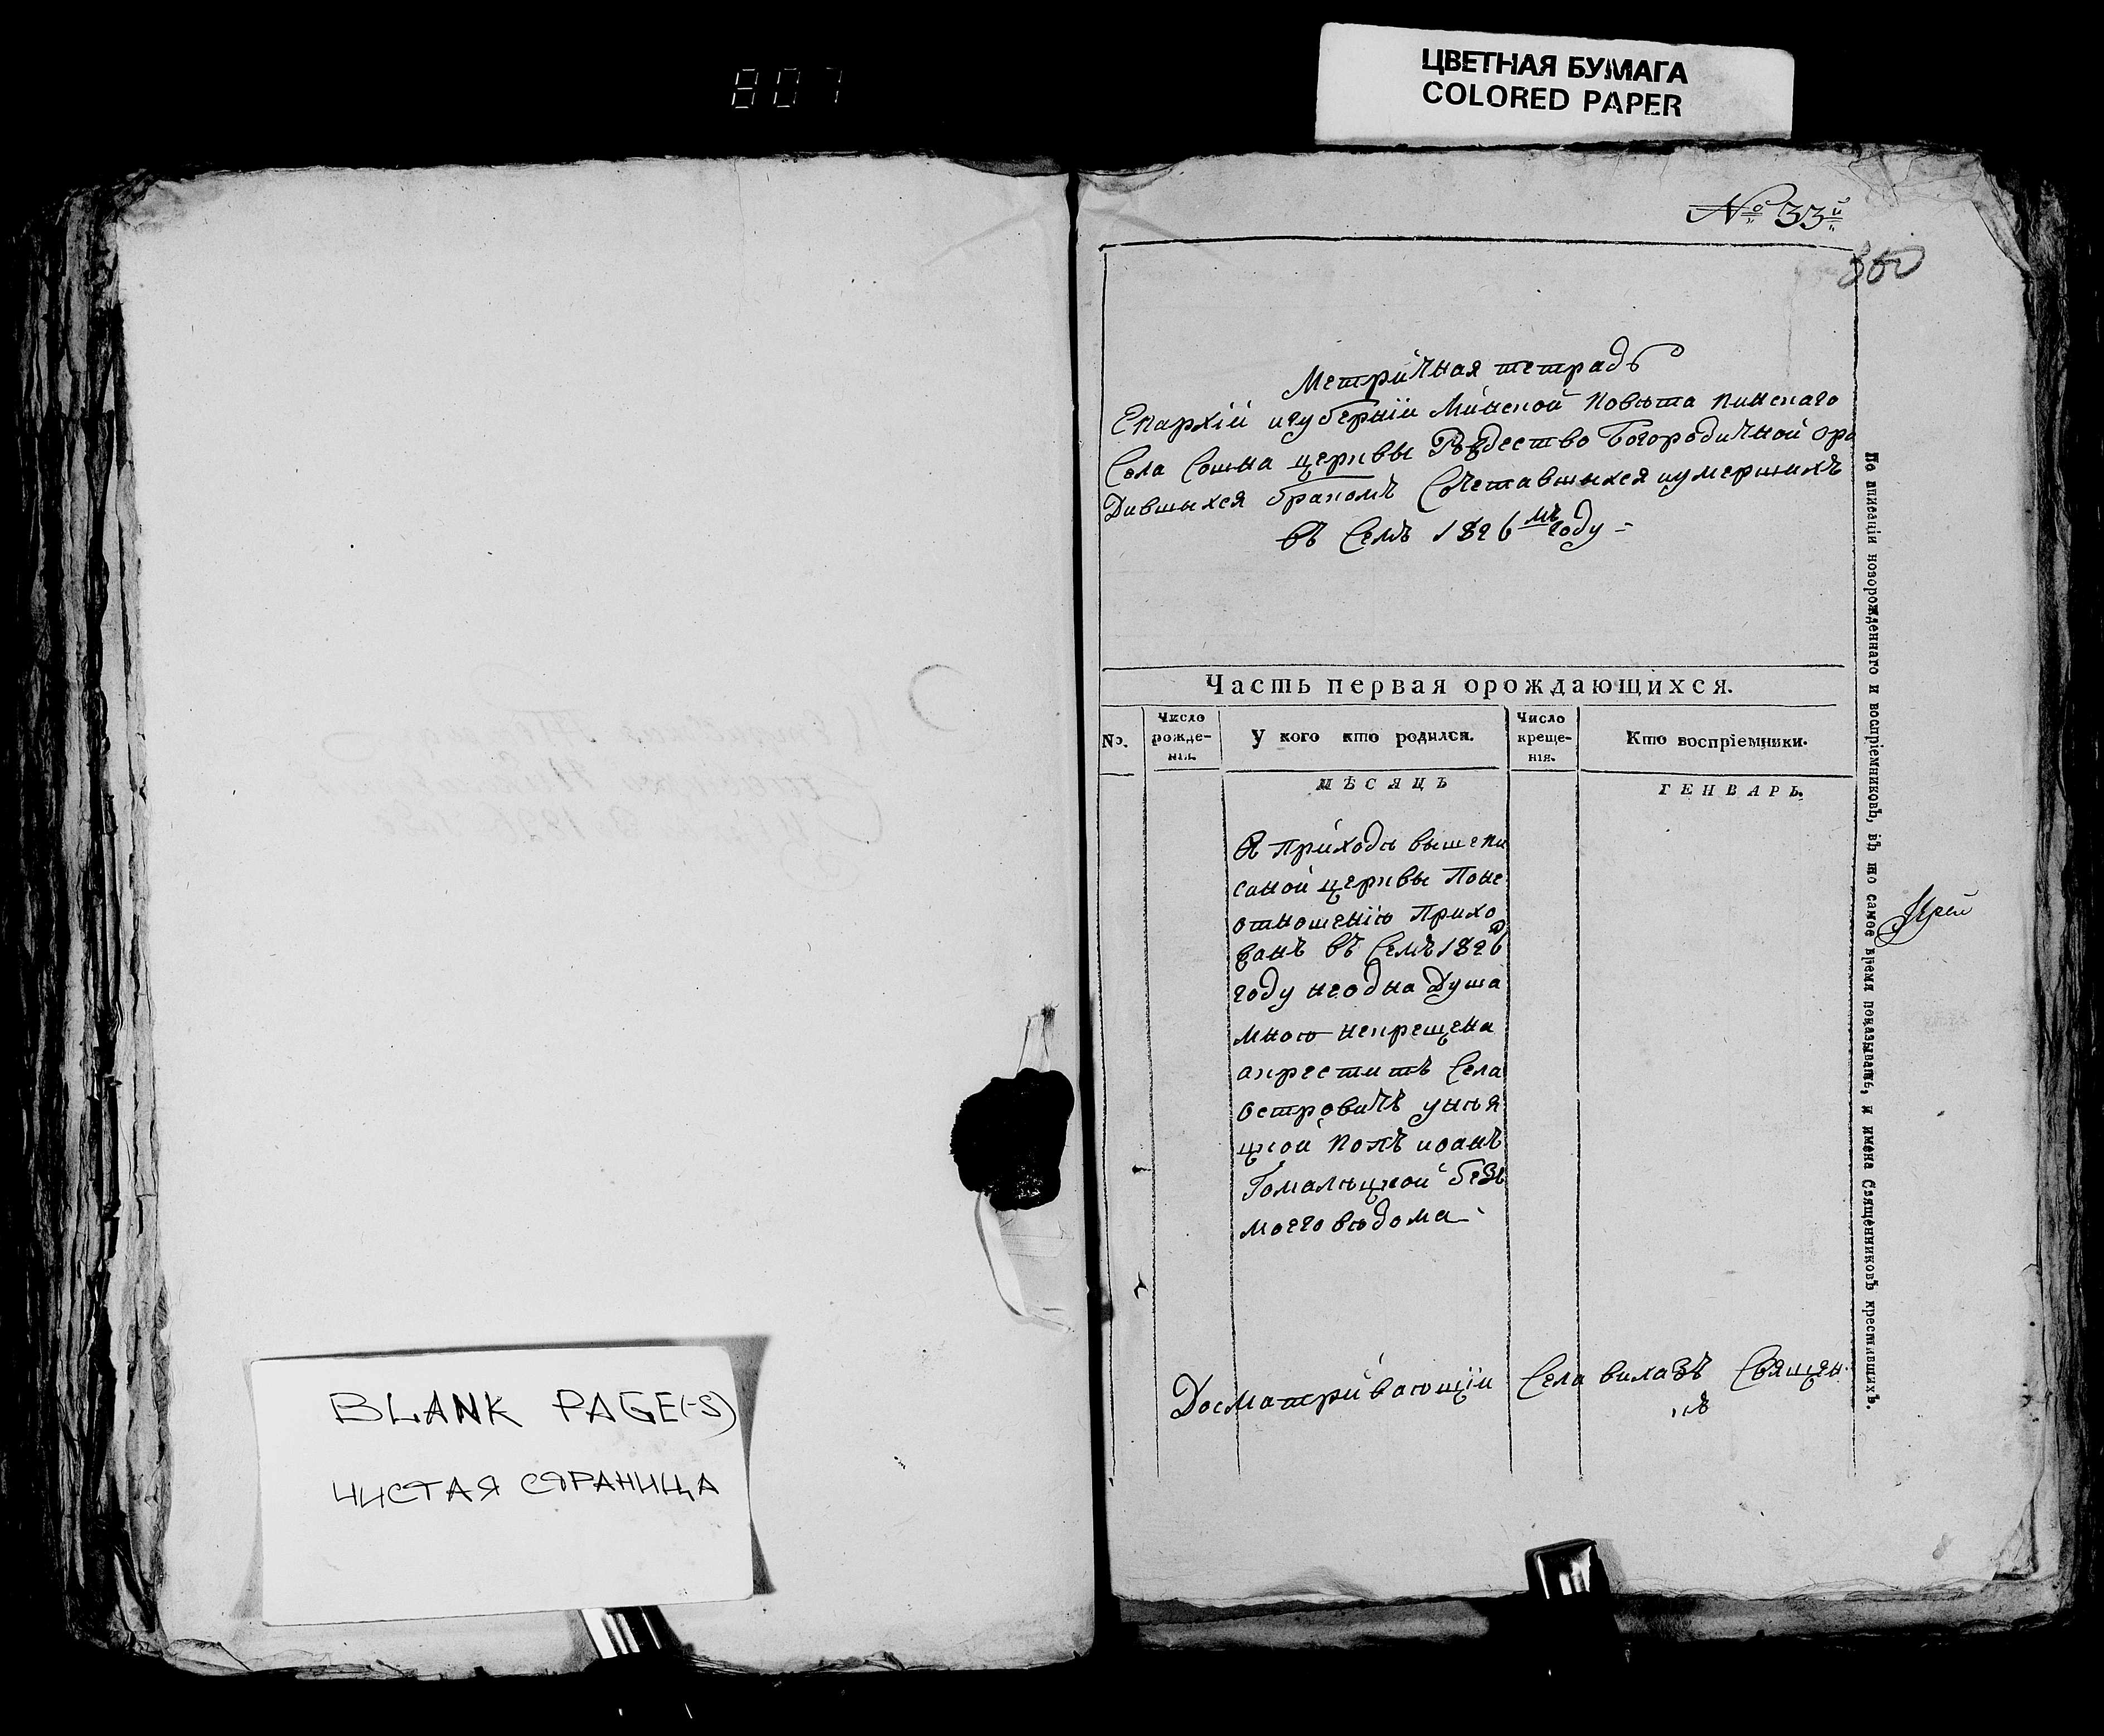 807
ЦВЕТНАЯ БУМАГА
COLORED PAPER
№ 33й
360
Метричная тетрадь
Епархіи игуберніи Минской Повѣта Пинскаго
Села Сошна церквы Рождество Богородичной оро
Дившыхся бракомъ Сочетавшыхся иумершихъ
въ Семъ 1826мъ году
Часть первая орождающихся.
No.
Число рожде-нія.
У кого кто родился.
Число креще-нія.
Кто воспріемники.
МѢСЯЦЪ
ГЕНВАРЬ.
въ Приходѣ вышепи
саной церквы Поне
отношенію Прихо
жанъ въ Семъ 1826
году неодна Душа
мною некрещена
акрестить Села
островичъ уніят
цкой попъ иоанъ
Гомалѣцкой безъ
моего вѣдома
Досматривающій Села вилазъ Священ
Іерей
По вписаціи новорожденнаго и воспріемниковъ, въ то самое время показывать, и имена Священниковъ крестившихъ.
BLANK PAGE(-S)
ЧИСТАЯ СТРАНИЦА